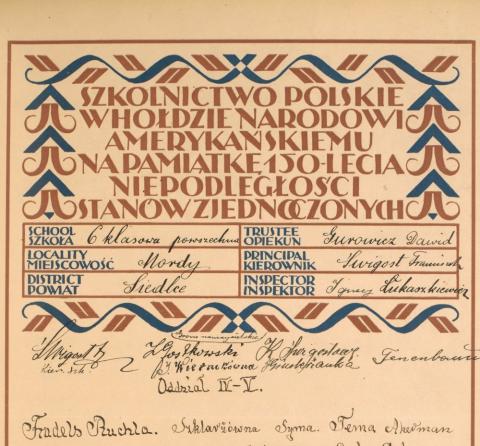 SZKOLNICTWO POLSKIE
W HOŁDZIE NARODOWI
AMERYKAŃSKIEMU
NA PAMIĄTKĘ 150-LECIA
NIEPODLEGŁOŚCI
STANÓW ZJEDNOCZONYCH
SCHOOL SZKOŁA 6 klasowa powszechna TRUSTEE OPIEKUN Gurowicz Dawid
LOCALITY MIEJSCOWOŚĆ Mordy PRINCIPAL KIEROWNIK Świgost Franciszek
DISTRICT POWIAT Siedlce INSPECTOR INSPEKTOR Ignacy Łukaszkiewicz
Grono nauczycielskie
Świgost F. Z. Gostkowski K. Świgostowa Tenenbaum
Kier. Szk.
Oddział IV-V.
Fradels Ruchla. Szklarzówna Syma. Tema